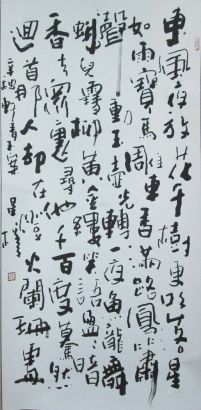 東風夜放花千樹更吹落星
如雨寶馬雕車香滿路鳳簫
聲動玉壺光轉一夜魚龍舞
蛾兒雪柳黃金縷笑語盈暗
香去眾裏尋他千百度驀然
迴首那人却在燈火闌珊處
青玉案